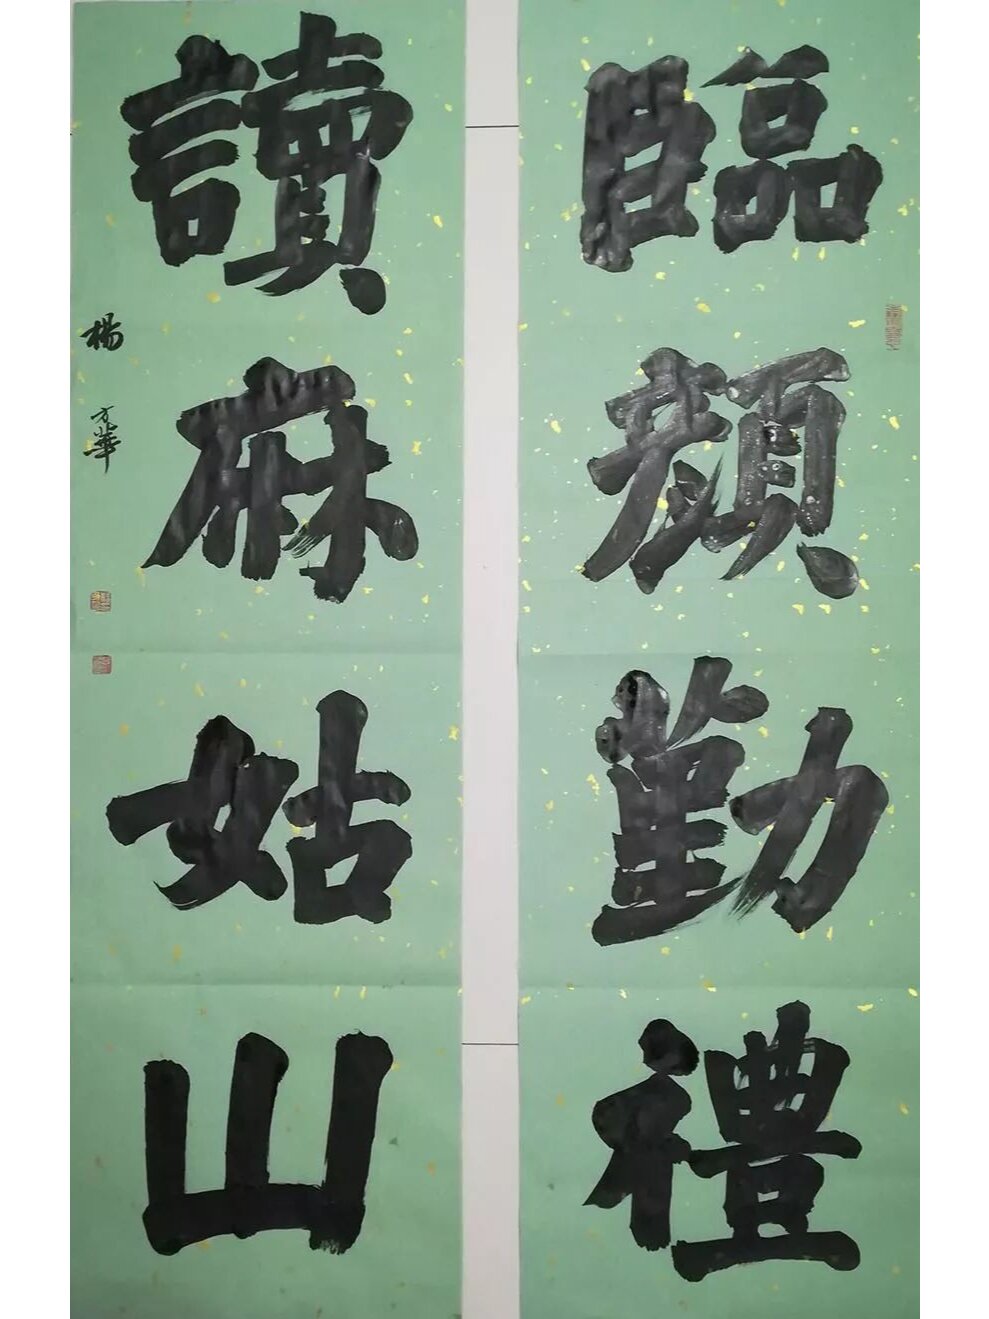 臨顏勤禮
讀麻姑山
楊方華